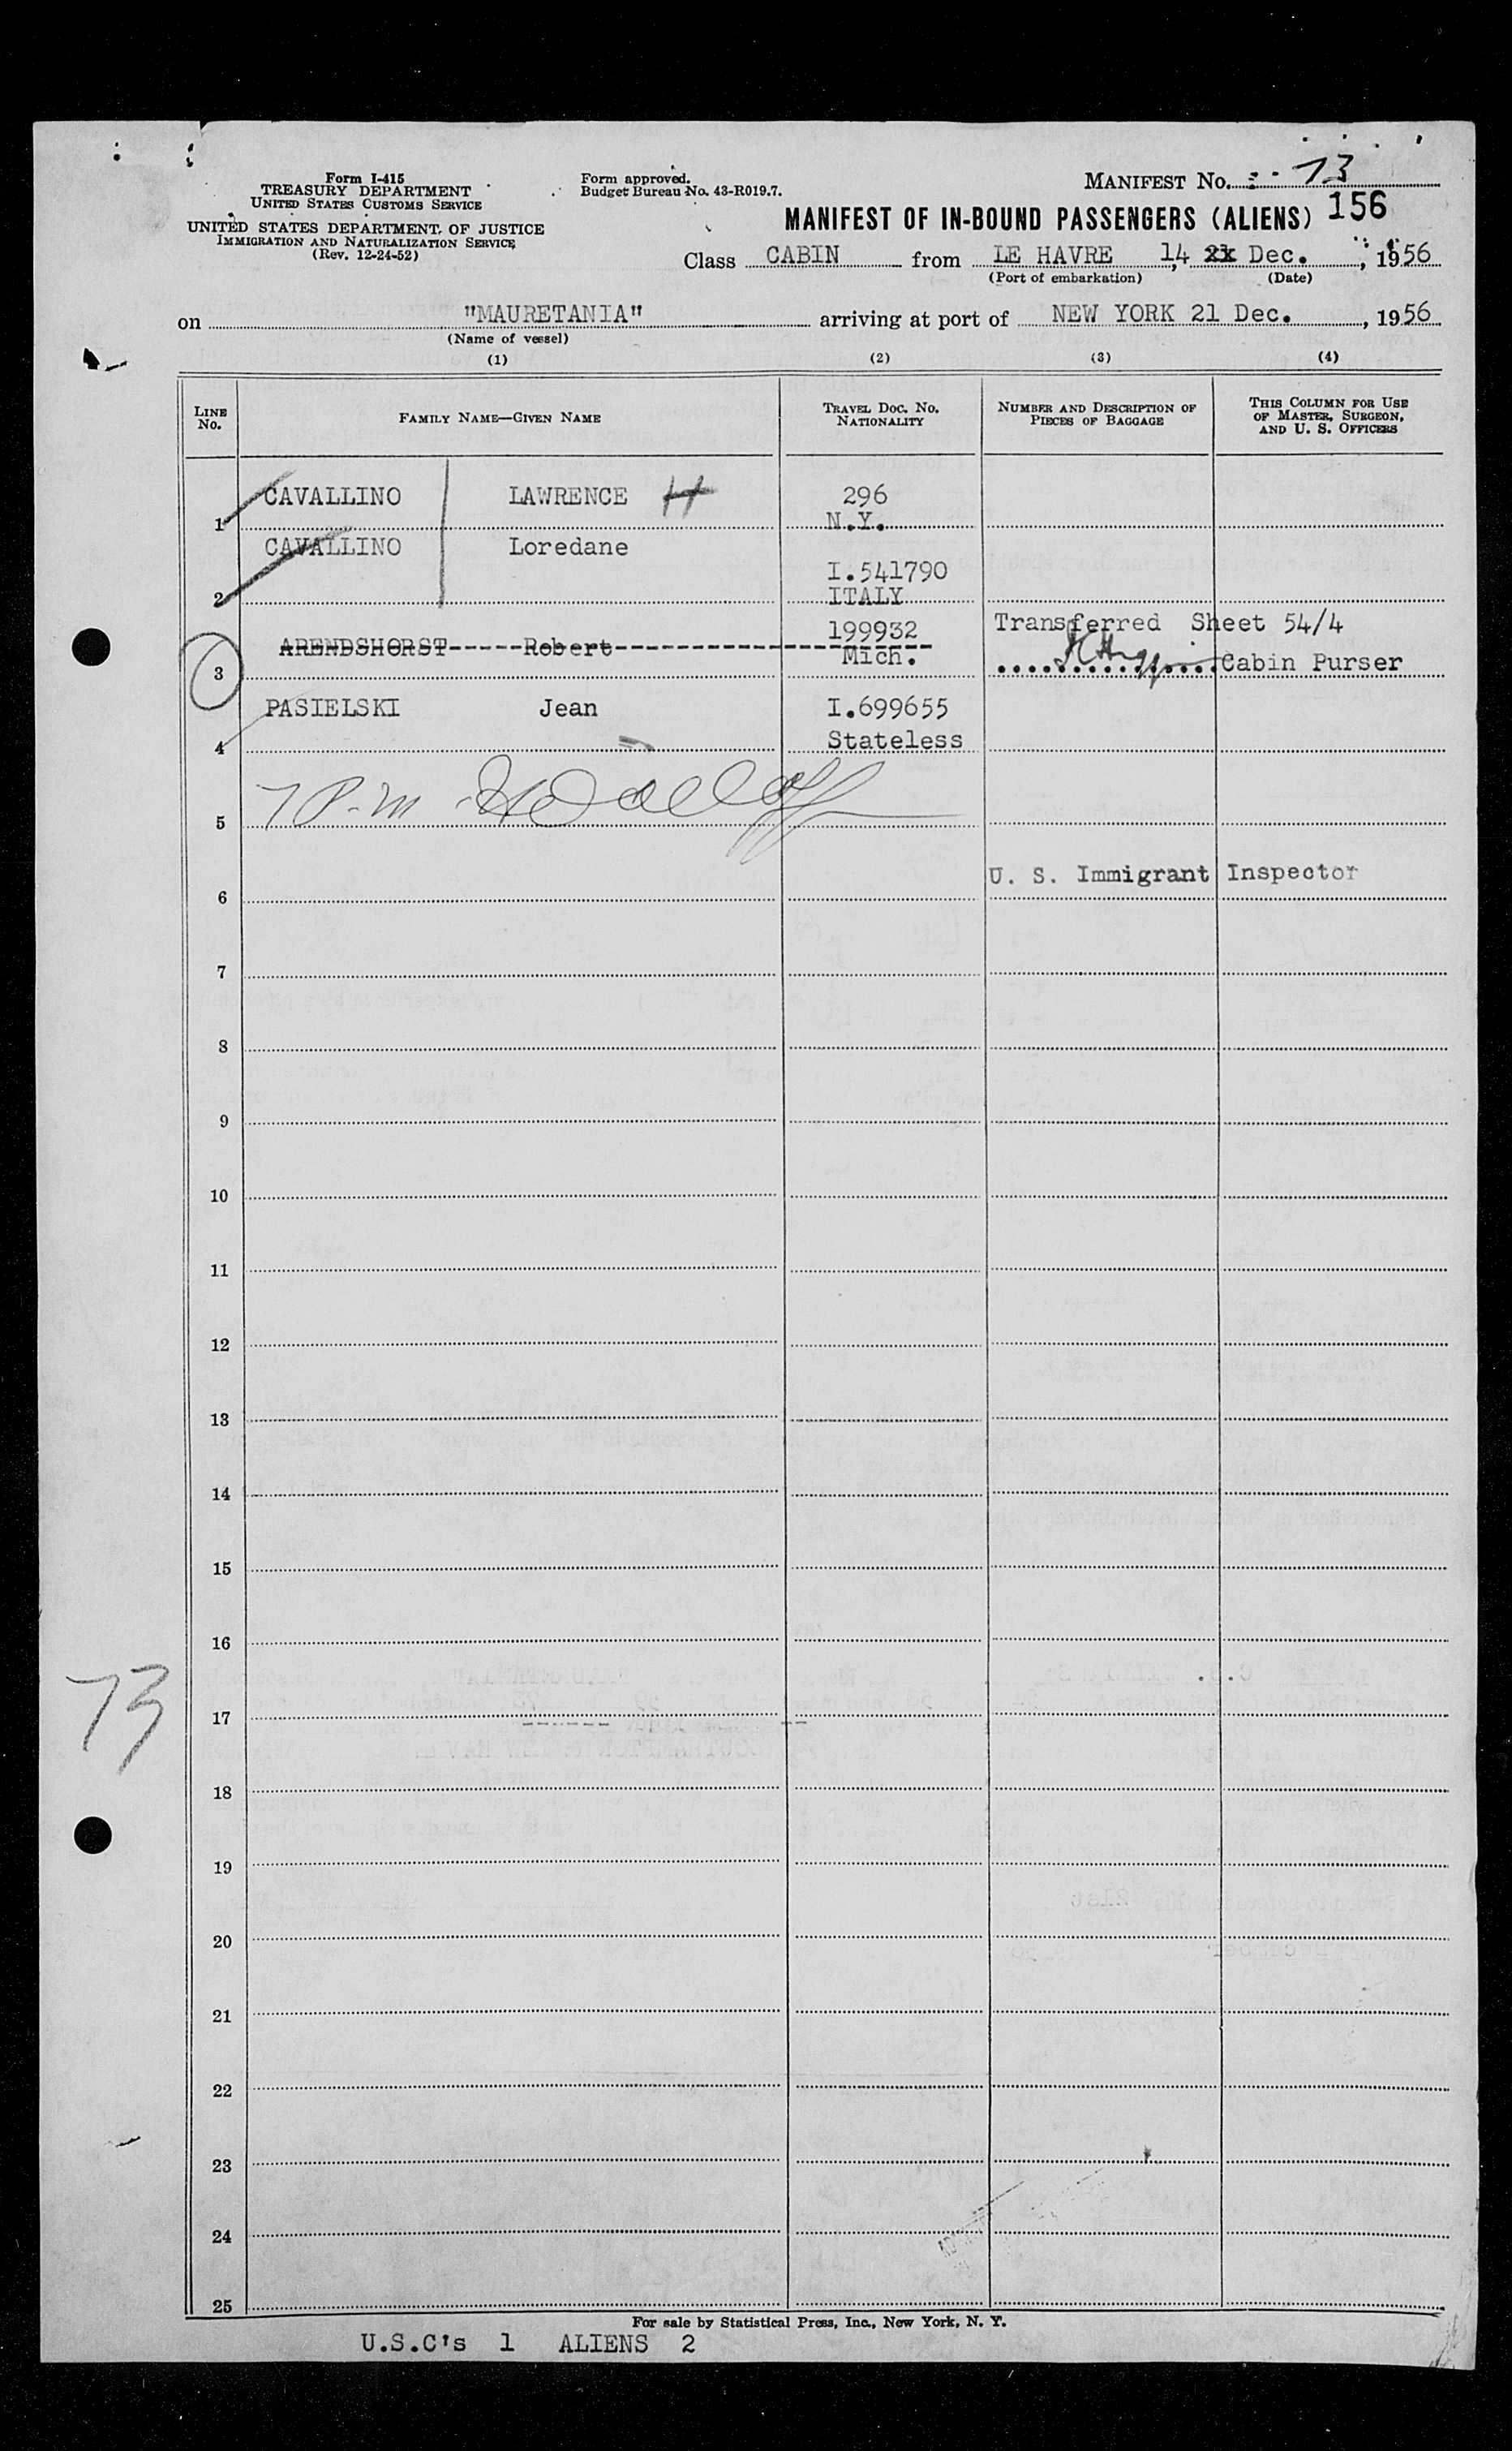 Form I-415
TREASURY DEPARTMENT
UNITED STATES CUSTOMS SERVICE
UNITED STATES DEPARTMENT OF JUSTICE
IMMIGRATION AND NATURALIZATION SERVICE
(Rev. 12-24-52)
Form approved.
Budget Bureau No. 43-R019.7.
MANIFEST No. 73
MANIFEST OF IN-BOUND PASSENGERS (ALIENS) 156
Class CABIN from LE HAVRE 14, Dec. , 1956
(Port of embarkation) (Date)
on "MAURETANIA" arriving at port of NEW YORK 21 Dec. , 1956
(Name of vessel)
(1) (2) (3) (4)
LINE No. FAMILY NAME—GIVEN NAME TRAVEL DOC. No. NATIONALITY NUMBER AND DESCRIPTION OF PIECES OF BAGGAGE THIS COLUMN FOR USE OF MASTER, SURGEON, AND U. S. OFFICERS
1 CAVALLINO LAWRENCE 296
N.Y.
2 CAVALLINO Loredane I.541790
ITALY
3 ARENDSHORST-----Robert 199932 Transferred Sheet 54/4
Mich. Cabin Purser
4 PASIELSKI Jean I.699655
Stateless
5 7 P.m
U. S. Immigrant Inspector
6
7
8
9
10
11
12
13
14
15
16
73
17
18
19
20
21
22
23
24
25
For sale by Statistical Press, Inc., New York, N. Y.
U.S.C's 1 ALIENS 2